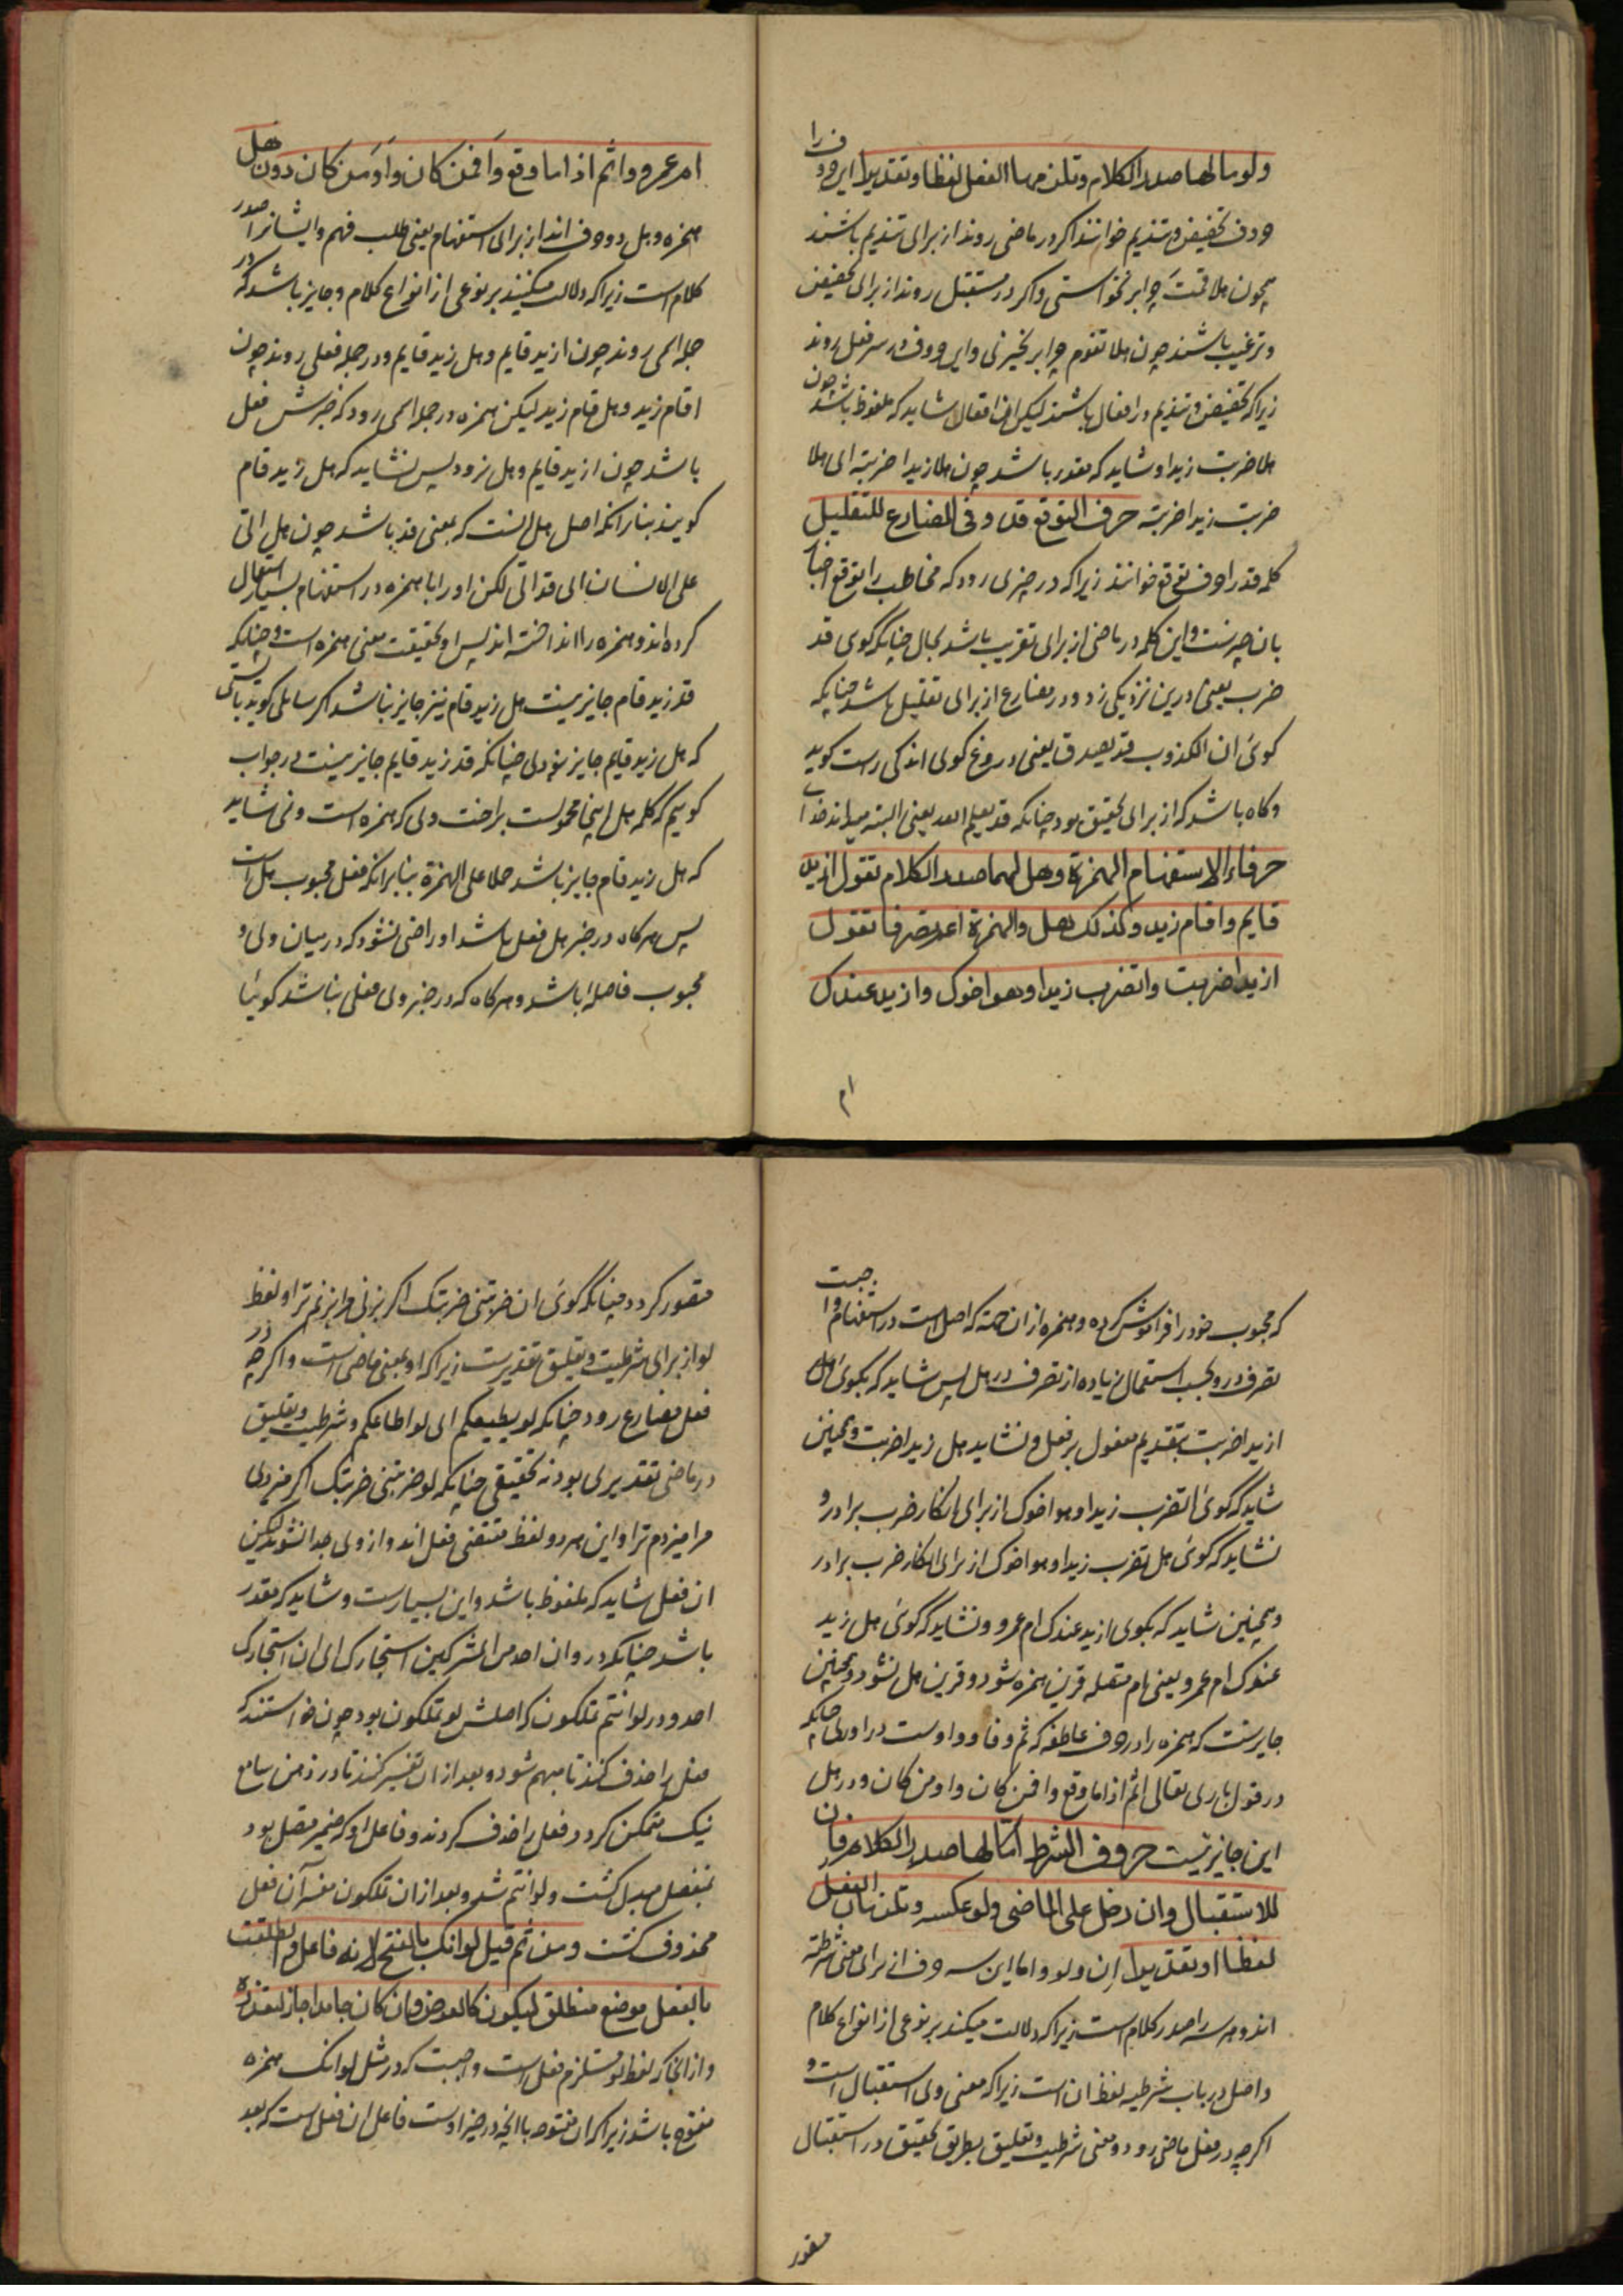 ولوما لها صدر الکلام وتلزمها الفعل لفظا وتقدیرا این حروف را
حروف تحضیض و تندیم خوانند اکر در ماضی روند از برای تندیم باشند
چون هلا قمت چرا برنخواستی و اکر در مستقبل روند از برای تحضیض
و ترغیب باشند چون هلا تقوم چرا برنخیزی و این حروف در سر فعل روند
زیراکه تحضیض و تندیم در افعال باشند لیکن این افعال شاید که ملفوظ باشد چون
هلا ضربت زیدا و شاید که مقدر باشد چون هلا زیدا ضربته ای هلا
ضربت زیدا ضربته حرف التوقع قد وفی المضارع للتقلیل
کلمه قد را حرف توقع خوانند زیراکه در چیزی رود که مخاطب را توقع اخبار
بان چیزست و این کلمه در ماضی از برای تقریب باشد بحال چنانکه کوی قد
ضرب یعنی درین نزدیکی زد و در مضارع از برای تقلیل باشد چنانکه
کوی ان الکذوب قد یصدق یعنی دروغ کوی اندکی راست کوید
و کاه باشد که از برای تحقیق بود چنانکه قد یعلم الله یعنی البته میداند خدای
حرفا الاستفهام الهمزة وهل لهما صدر الکلام تقول ازید
قایم واقام زید وکذلک هل والهمزة اعم تصرفا تقول
ازیدا ضربت واتضرب زیدا وهو اخوک وازید عندک
ام
ام عمرو واثم اذا ما وقع وافمن کان واومن کان دون هل
همزه و هل دو حرف اند از برای استفهام یعنی طلب فهم و ایشانرا صدر
کلام است زیراکه دلالت میکنند بر نوعی از انواع کلام و جایز باشد که در
جمله اسمی روند چون ازید قایم و هل زید قایم و در جمله فعلی روند چون
اقام زید و هل قام زید لیکن همزه در جمله اسمی رود که خبرش فعل
باشد چون ازید قایم و هل نرود پس نشاید که هل زید قام
کویند بنابرانکه اصل هل انست که بمعنی قد باشد چون هل اتی
علی الانسان ای قد اتی لکن او را با همزه در استفهام بسیار استعمال
کرده اند و همزه را انداخته اند پس او بحقیقت بمعنی همزه است و چنانکه
قد زید قام جایز نیست هل زید قام نیز جایز نباشد اکر سایلی کوید بایستی
که هل زید قایم جایز نبودی چنانکه قد زید قایم جایز نیست در جواب
کوییم که کلمه هل اینجا محمولست بر اخت وی که همزه است و نمی شاید
که هل زید قام جایز باشد حملا علی الهمزة بنابرانکه فعل محبوب هل است
پس هرکاه در خبر هل فعل باشد او راضی نشود که در میان وی و
محبوب فاصله باشد و هرکاه که در خبر وی فعلی نباشد کوئیا
که محبوب خود را فراموش کرده و همزه از ان جهته که اصل است در استفهام
تصرف در و بحسب استعمال زیاده از تصرف در هل پس شاید که بکوی
ازیدا ضربت بتقدیم مفعول بر فعل و نشاید هل زیدا ضربت و همچنین
شاید که کوی اتضرب زیدا وهو اخوک از برای انکار ضرب برادر و
نشاید که کوی هل تضرب زیدا وهو اخوک از برای انکار ضرب برادر
و همچنین شاید که بکوی ازید عندک ام عمرو و نشاید که کوی هل زید
عندک ام عمرو یعنی ام متصله قرین همزه شود و قرین هل نشود و همچنین
جایزست که همزه را در حروف عاطفه که ثم و فا و واوست در اوری چنانکه
در قول باری تعالی اثم اذا ما وقع وافمن کان واومن کان و در هل
این جایز نیست حروف الشرط ان ولو واما لها صدر الکلام فان
للاستقبال وان دخل علی الماضی ولو عکسه وتلزمان الفعل
لفظا او تقدیرا ان ولو واما این سه حرف از برای معنی شرطیه
اند و هر سه را صدر کلام است زیراکه دلالت میکند بر نوعی از انواع کلام
و اصل در باب شرطیه لفظ ان است زیراکه معنی وی استقبال است و
اکرچه در فعل ماضی رود و معنی شرطیت و تعلیق بطریق تحقیق در استقبال
متصور
متصور کردد چنانکه کوی ان ضربتنی ضربتک اکر بزنی مرا بزنم ترا و لفظ
لو از برای شرطیت و تعلیق تقدیرست زیراکه او بمعنی ماضی است و اکرچه در
فعل مضارع رود چنانکه لو یطیعکم ای لو اطاعکم و شرطیت و تعلیق
در ماضی تقدیری بود نه تحقیقی چنانکه لو ضربتنی ضربتک اکر میزدی
مرا میزدم ترا و این هر دو لفظ مقتضی فعل اند و از وی جدا نشوند لیکن
ان فعل شاید که ملفوظ باشد و این بسیارست و شاید که مقدر
باشد چنانکه در وان احد من المشرکین استجارک ای ان استجارک
احد و در لو انتم تملکون که اصلش لو تملکون بود چون خواستند که
فعل را حذف کنند تا مبهم شود و بعد از ان تفسیر کنند تا در ذهن سامع
نیک متمکن کردد فعل را حذف کردند و فاعل او که ضمیر متصل بود
بمنفصل مبدل کشت و لو انتم شد و بعد از ان تملکون مفسر آن فعل
محذوف کشت ومن ثم قیل لو انک بالفتح لانه فاعل وانطلقت
بالفعل موضع منطلق لیکون کالعوض وان کان جامدا جاز لتعذره
و از انجا که لفظ لو مستلزم فعل است واجبست که در مثل لو انک همزه
مفتوح باشد زیراکه ان مفتوحه با انچه در حیز اوست فاعل ان فعل است که بعد